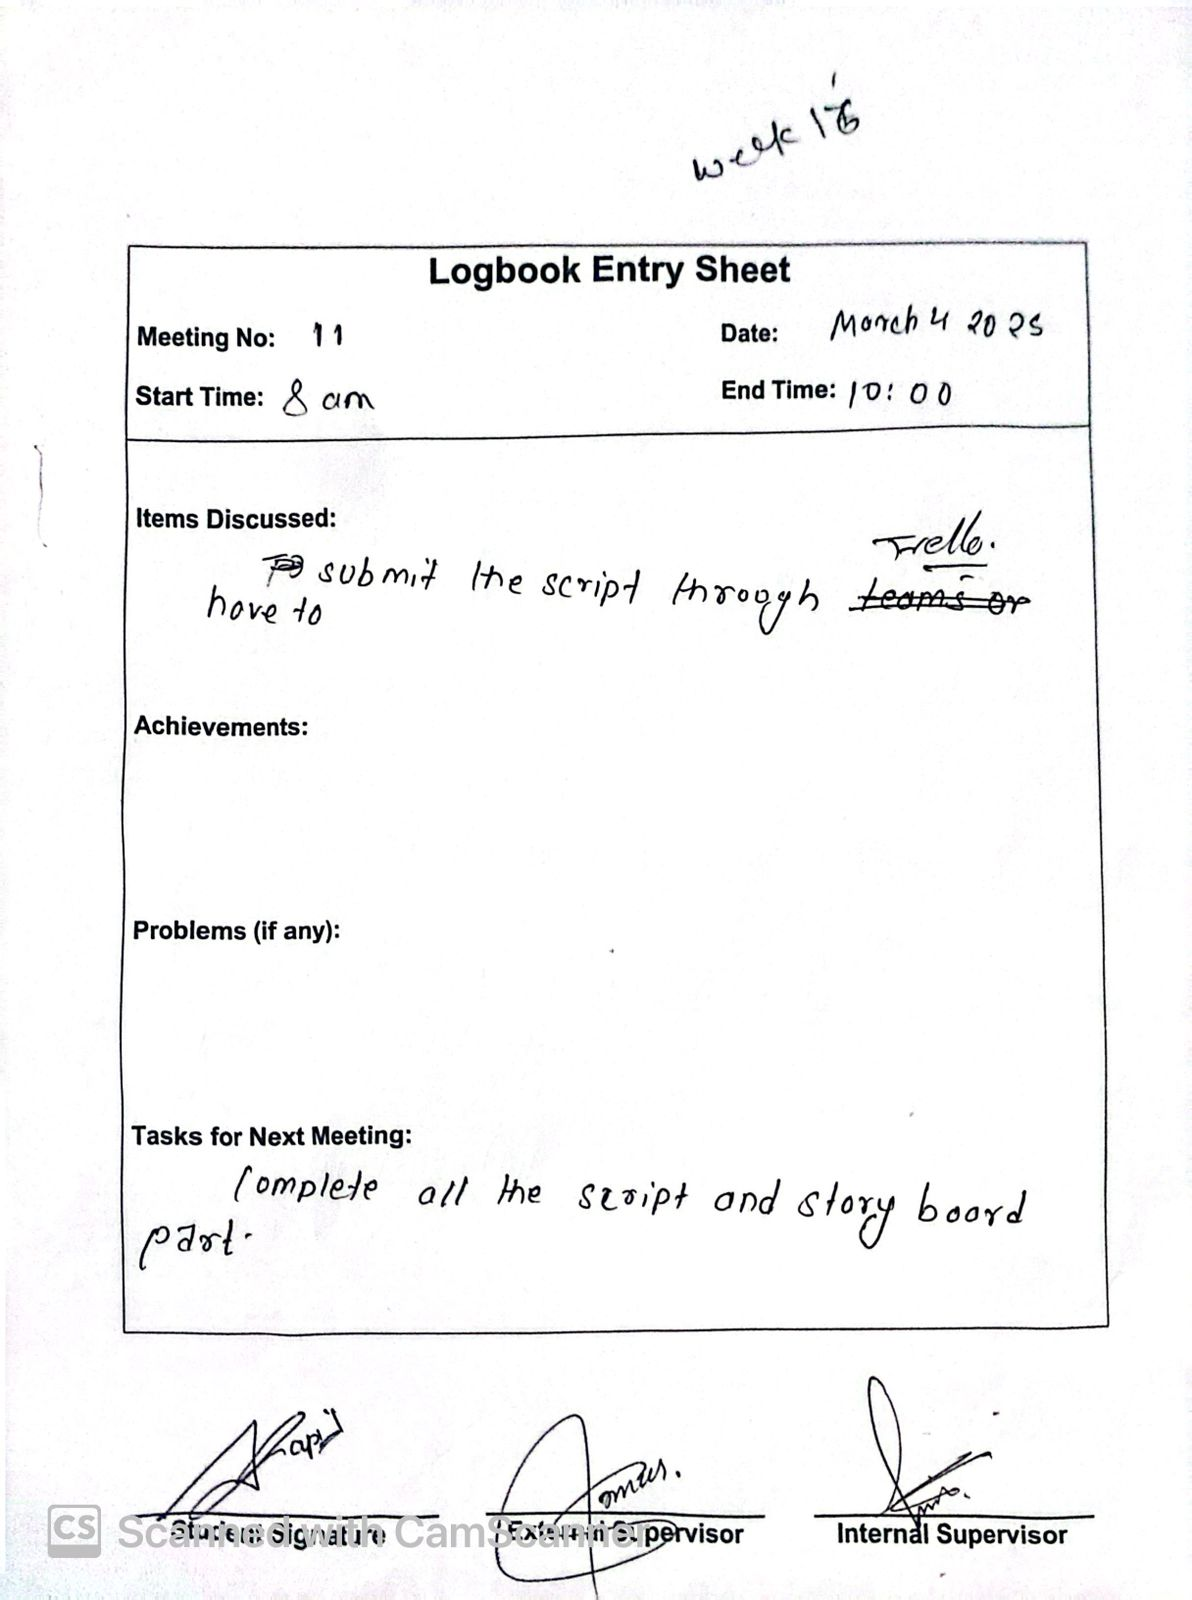 week 16
Logbook Entry Sheet
Meeting No: 11
Date: March 4 2025
Start Time: 8 am
End Time: 10:00
Items Discussed:
Trello.
submit the script through teams or
have to
Achievements:
Problems (if any):
Tasks for Next Meeting:
Complete all the script and story board
part.
Student Signature
External Supervisor
Internal Supervisor
CS Scanned with CamScanner